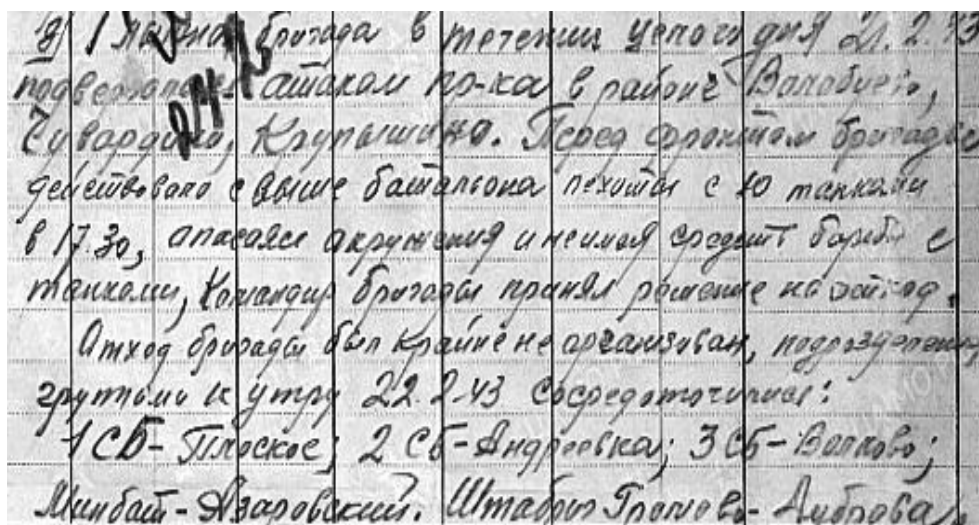 1 лыжная бригада в течении целого дня 21.2.43
подвергалась атакам пр-ка в районе
Чувардино, Крупышино. Перед фронтом бригады
действовало свыше батальона пехоты с 10 танками
в 17.30, опасаясь окружения и неимея средств борьбы с
танками, Командир бригады принял решение на отход.
Отход бригады был крайне не организован, подразделения
группами к утру 22.2.43 сосредоточились:
1 СБ- Плоское; 2 СБ-Андреевка; 3 СБ- Волково;
Минбат-Азаровский. Штабриг - Дубрава.